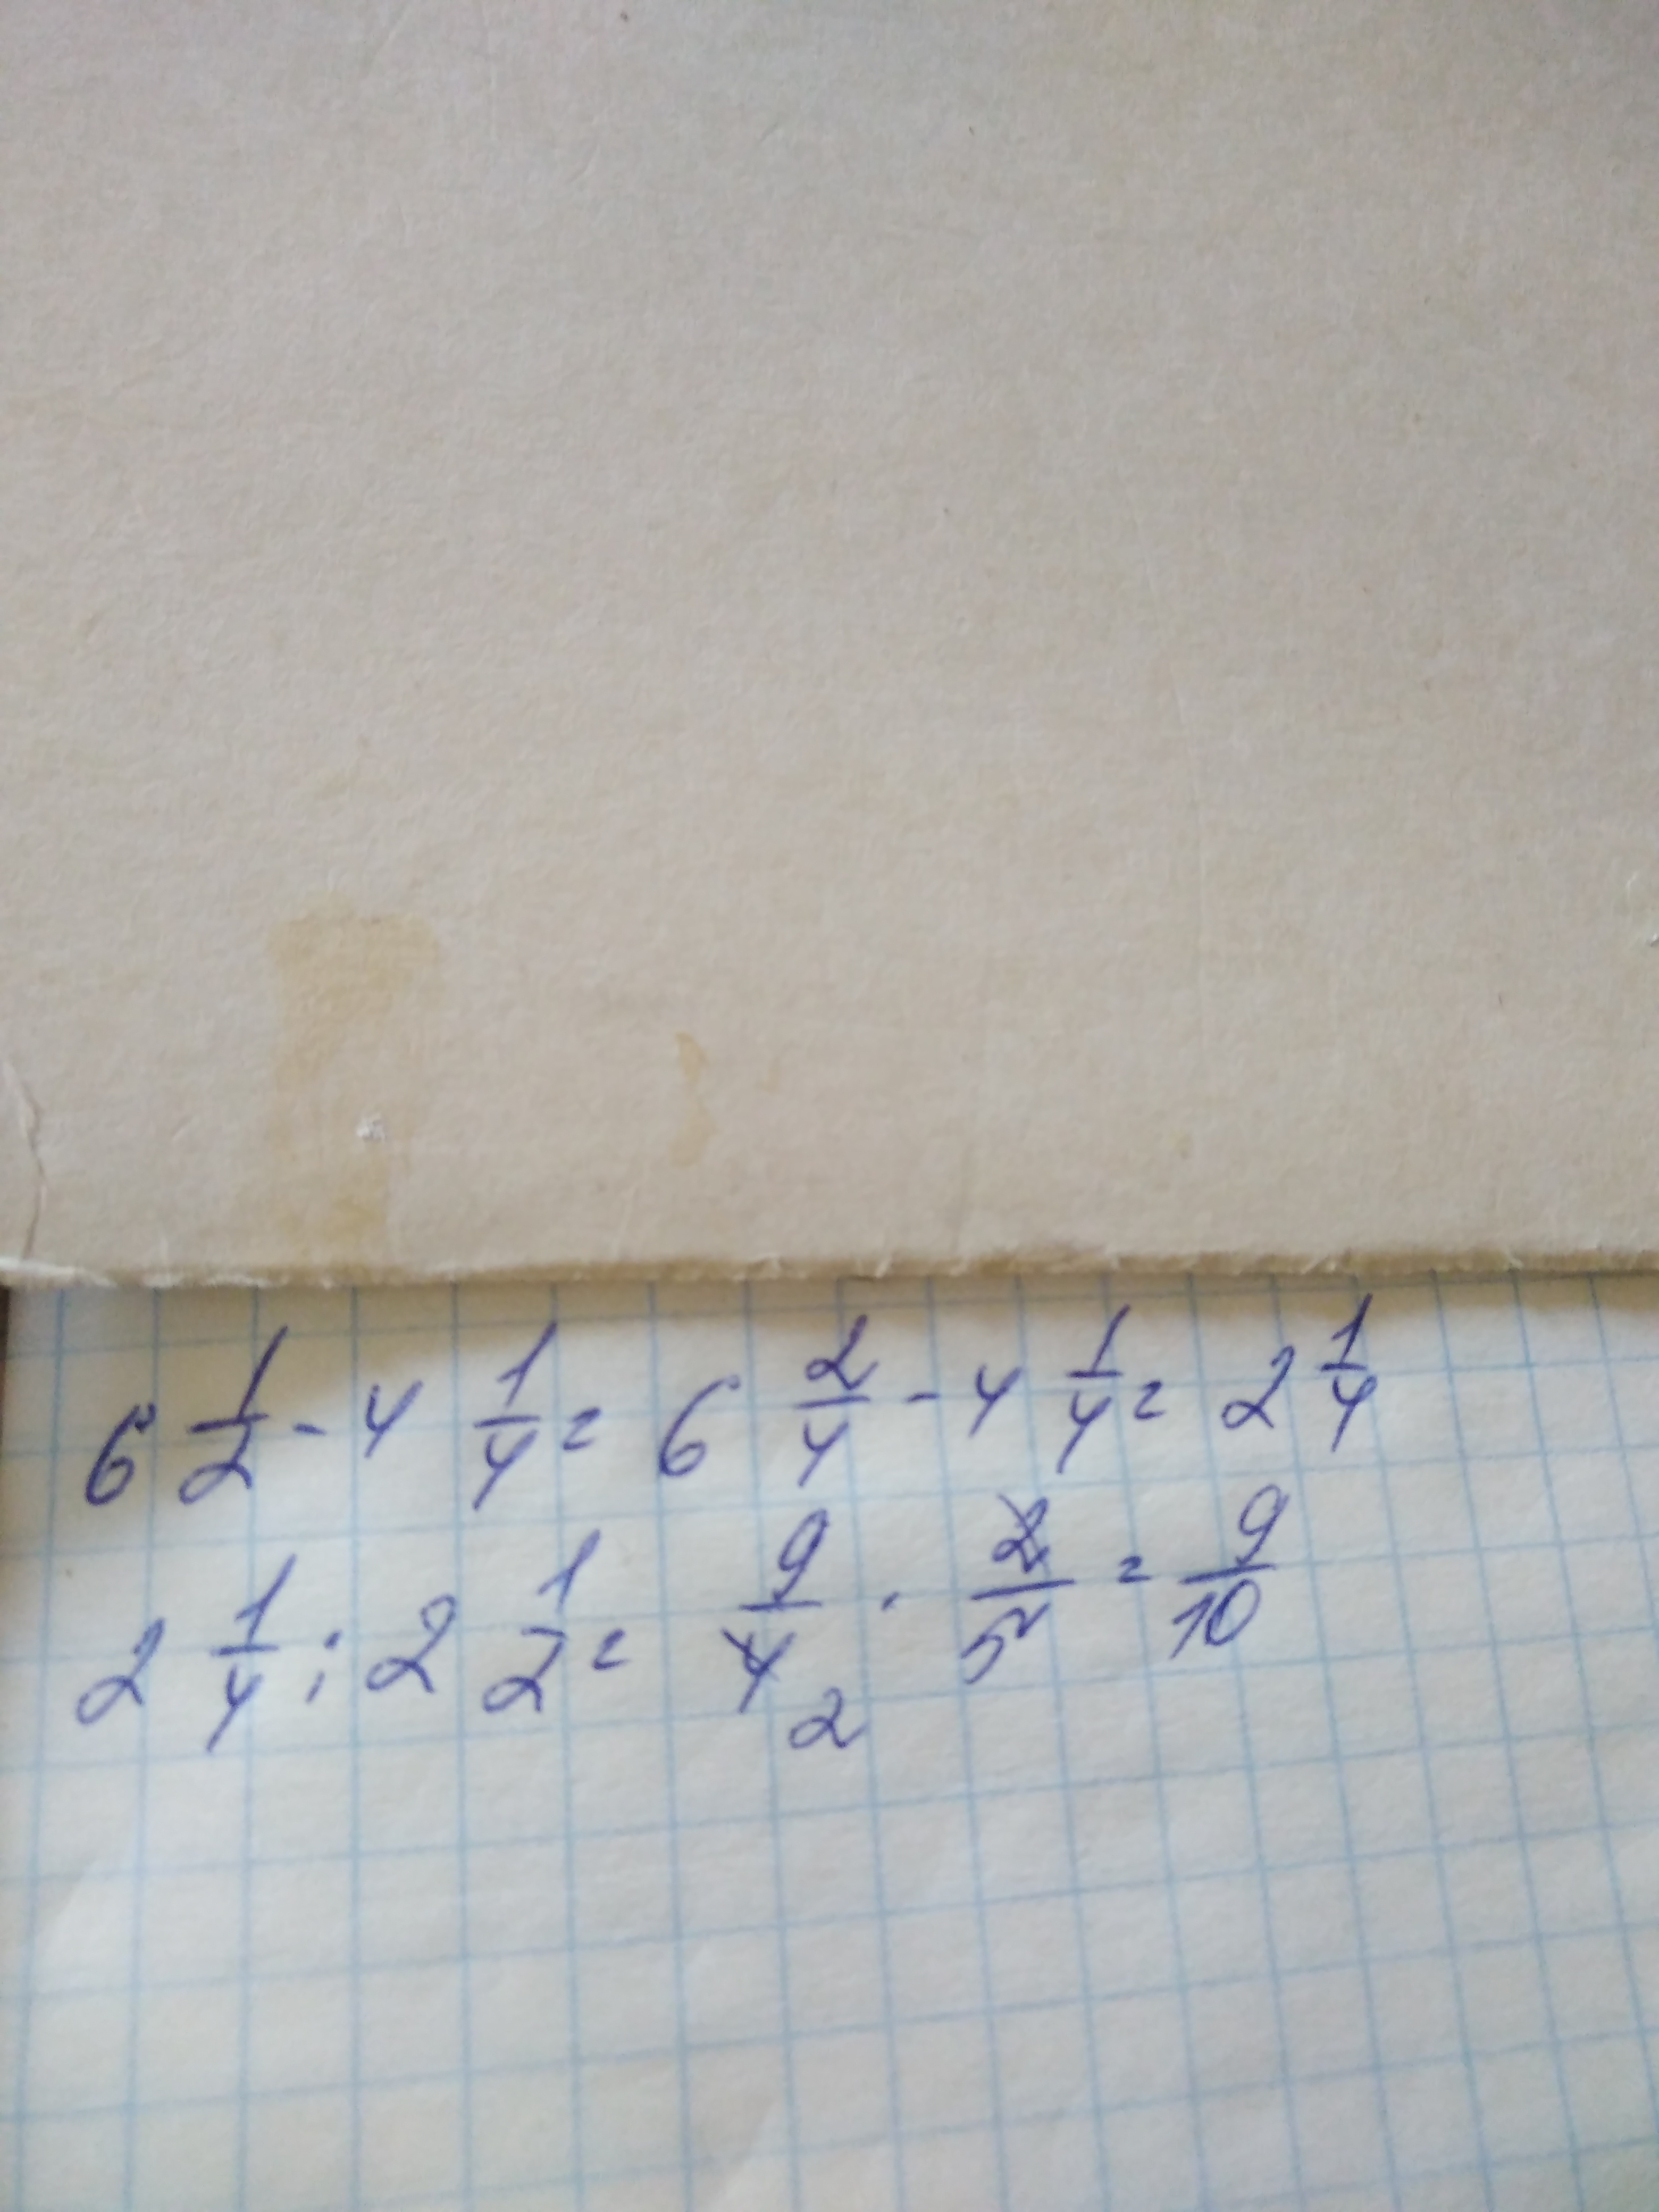 6 1/2 - 4 1/4 = 6 2/4 - 4 1/4 = 2 1/4
2 1/4 : 2 1/2 = 9/4 2 · 2/5 = 9/10